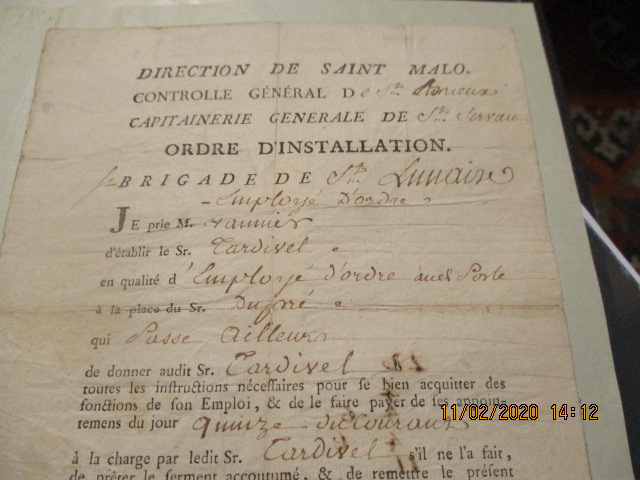 DIRECTION DE SAINT MALO.
CONTROLLE GÉNÉRAL De St.
CAPITAINERIE GENERALE DE St. Servan
ORDRE D'INSTALLATION.
BRIGADE DE St. Lunaire
Employé D'ordre
JE prie M. Vannier
d'établir le Sr. Tardivel
en qualité d'Employé d'ordre au dt Poste
à la place du Sr. Dufré
qui Passe Ailleurs
de donner audit Sr. Tardivel
toutes les inſtructions néceſſaires pour ſe bien acquitter des
fonctions de ſon Emploi, & de le faire payer de ſes appoin-
temens du jour quinze du Courant
à la charge par ledit Sr. Tardivel s'il ne l'a fait,
de prêter le ſerment accoutumé, & de remettre le préſent
11/02/2020 14:12